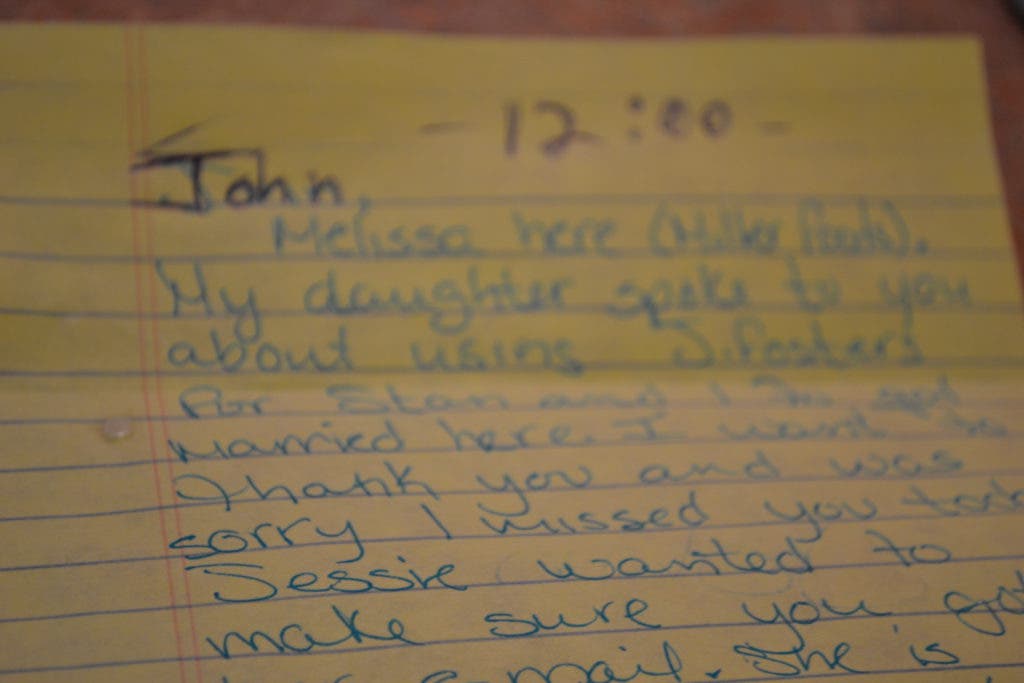 - 12:00 -
John,
Melissa here (Miller
My daughter spoke to you
about using J. Fosters
for Stan and I
married here. I want to
thank you and was
sorry I missed you
Jessie wanted to
make sure you got
e-mail. She is